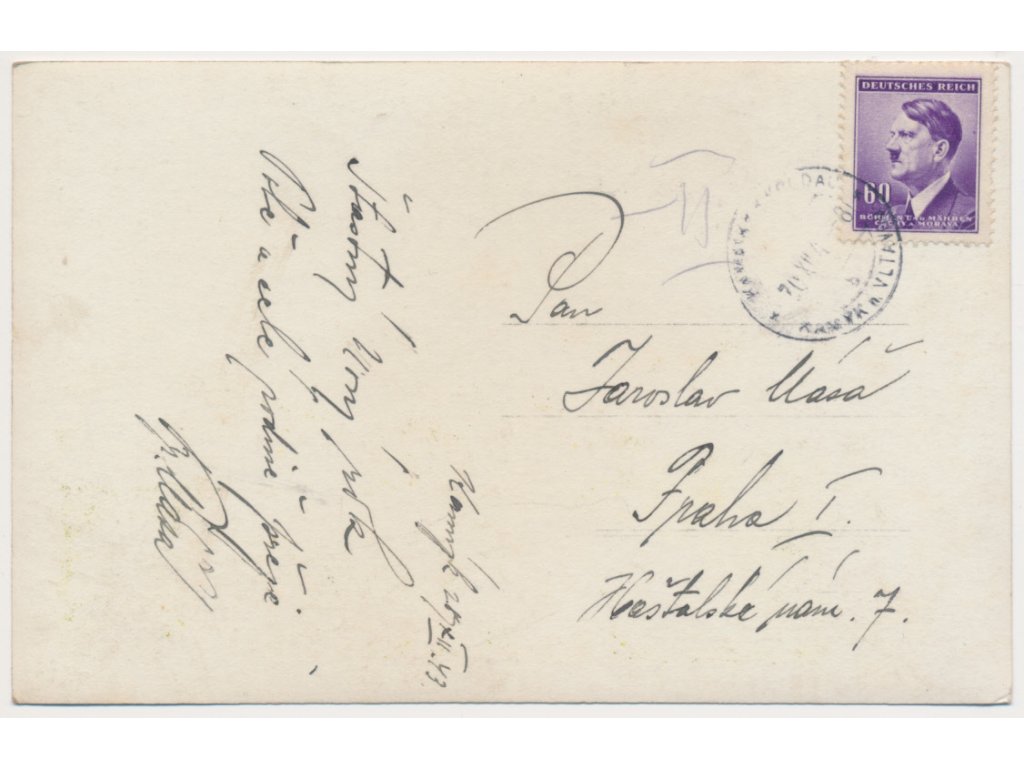 DEUTSCHES REICH
60
BÖHMEN UND MÄHREN
ČECHY A MORAVA
KAMÝK n. VLTAVOU
Pan
Jaroslav Máša
Praha I.
Haštalské nám. 7.
Kamýk 20/XII.43.
Šťastný Nový rok
Vše a celé rodině přeje
Máša